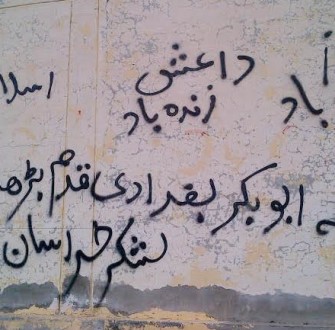 داعش
زنده باد
باد
ابوبکر بغدادی قدم بڑھ
لشکر خراسان